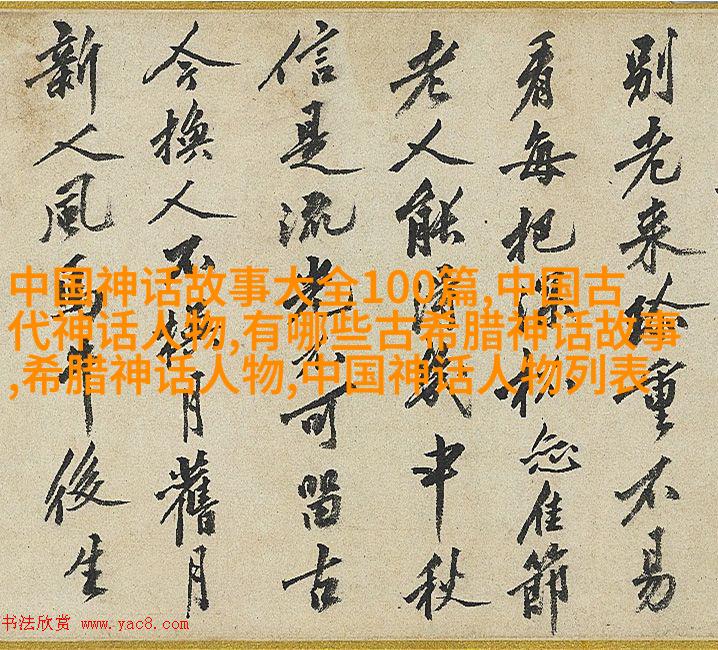 别老来重不易
看每把深佳節
老人能得幾中秋
信是流光不可留古
今換人不換月舊月
新人風馬牛後生
中国神话故事大全100篇,中国古
代神话人物,有哪些古希腊神话故事
,希腊神话人物,中国神话人物列表
书法欣赏 www.yac8.com